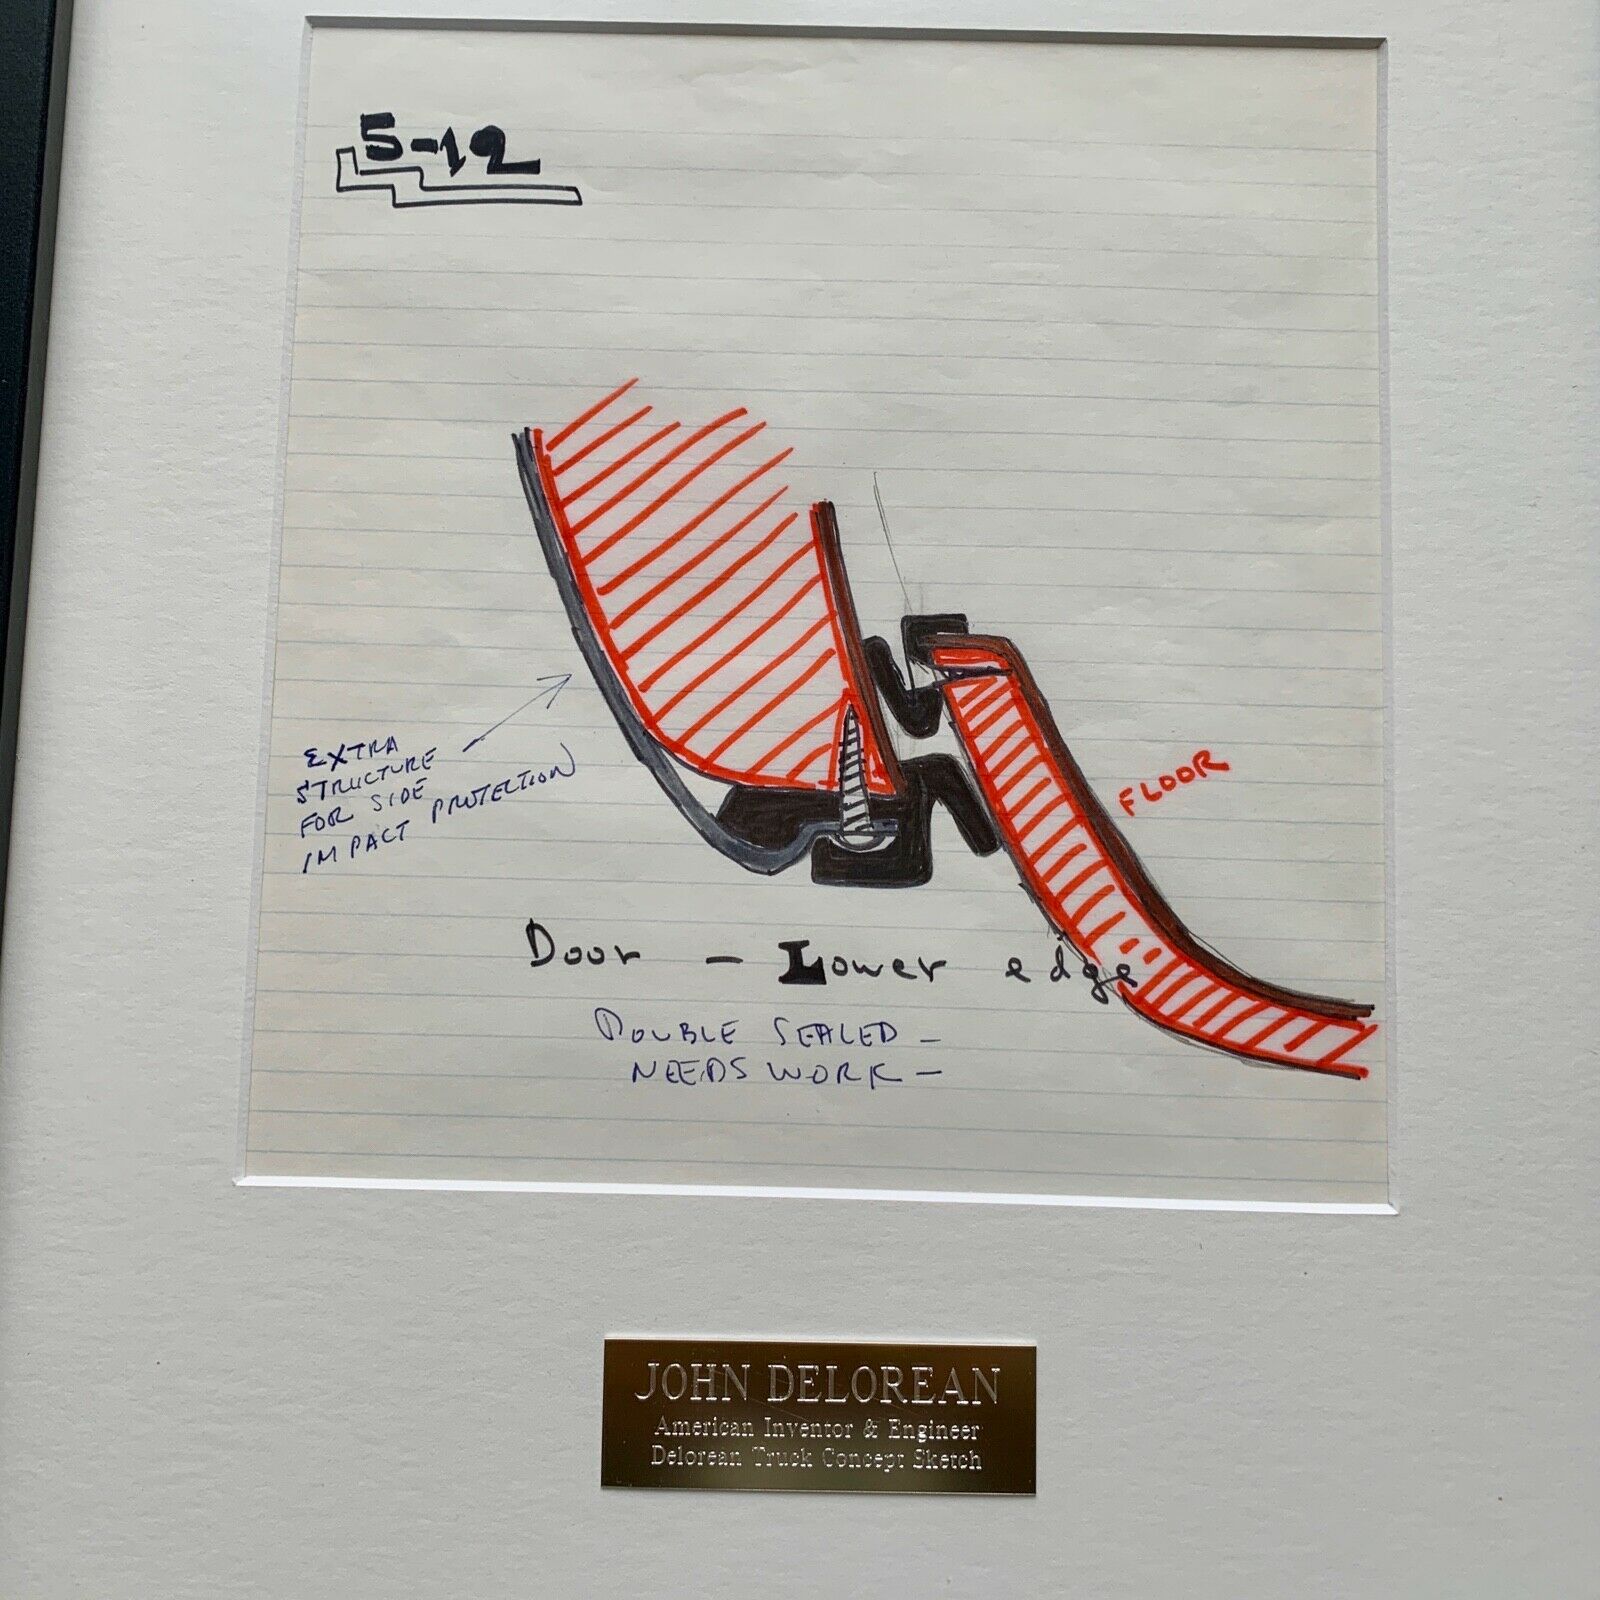 5-12
EXTRA
STRUCTURE
FOR SIDE
IMPACT PROTECTION
FLOOR
Door - Lower edge
DOUBLE SEALED -
NEEDS WORK -
JOHN DELOREAN
American Inventor & Engineer
Delorean Truck Concept Sketch